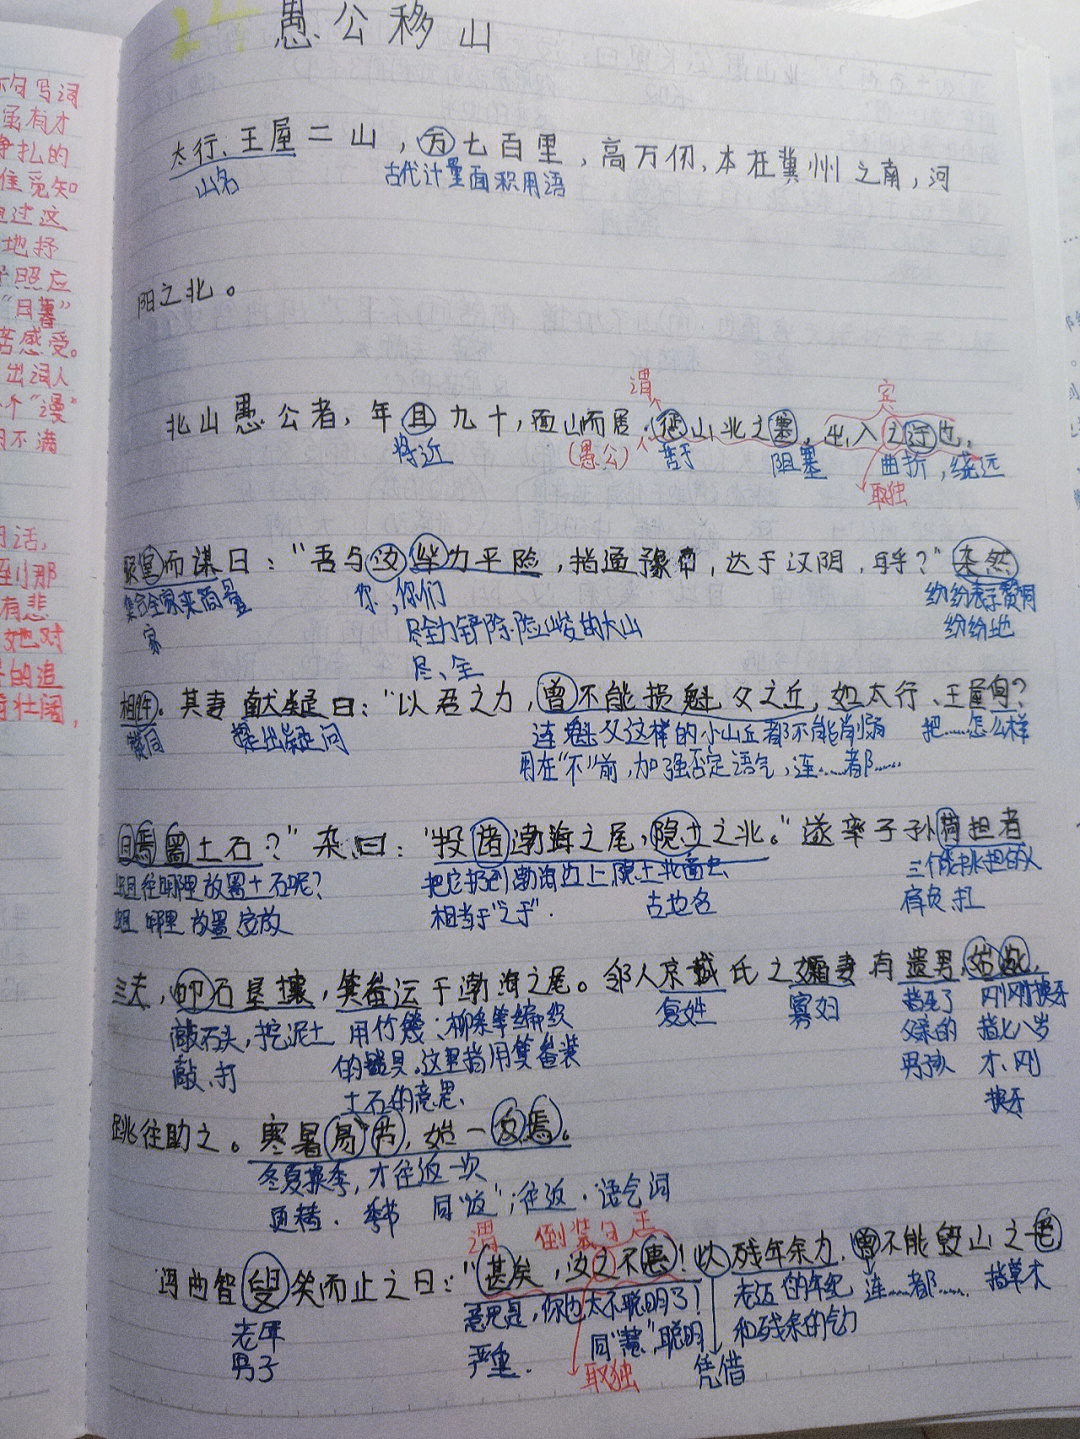 24 愚公移山
不句写词
虽有才
争扎的
隹觅知
通过这
地抒
照应
"日暮"
苦感受。
出词人
个"漫"
不满
到那
有悲
她对
的追
壮阔,
太行、王屋二山，方七百里，高万仞，本在冀州之南，河
山名 古代计量面积用语
阳之北。
谓 宾
北山愚公者，年且九十，面山而居。惩山北之塞，出入之迂也，
将近 (愚公) 苦于 阻塞 曲折，绕远
取独
聚室而谋曰："吾与汝毕力平险，指通豫南，达于汉阴，可乎？"杂然
集合全家来商量 你，你们 纷纷表示赞同
家 尽全力铲除险峻的大山 纷纷地
尽、全
相许。其妻献疑曰："以君之力，曾不能损魁父之丘，如太行、王屋何？
赞同 提出疑问 连魁父这样的小山丘都不能削减 把……怎么样
用在"不"前，加强否定语气，连……都……
且焉置土石？"杂曰："投诸渤海之尾，隐土之北。"遂率子孙荷担者
且往哪里放置土石呢？ 把它扔到渤海边上隐土北面去 三个能挑担的人
且 哪里 放置 安放 相当于"之于". 古地名 肩负 扛
三夫，叩石垦壤，箕畚运于渤海之尾。邻人京城氏之孀妻有遗男，始龀，
敲石头，挖泥土 用竹篾、柳条等编织 复姓 寡妇 指死了 刚刚换牙
敲、打 的器具。这里指用箕畚装 父亲的 指七八岁
土石的意思、 男孩 才、刚
换牙
跳往助之。寒暑易节，始一反焉。
冬夏换季，才往返一次
更替. 季节 同"返"；往返. 语气词
谓 倒装句 主
河曲智叟笑而止之曰："甚矣，汝之不惠！以残年余力，曾不能毁山之一毛
老年 意思是，你也太不聪明了！ 老迈的年纪 连……都…… 指草木
男子 严重. 同"慧"聪明 和残余的气力
取独 凭借